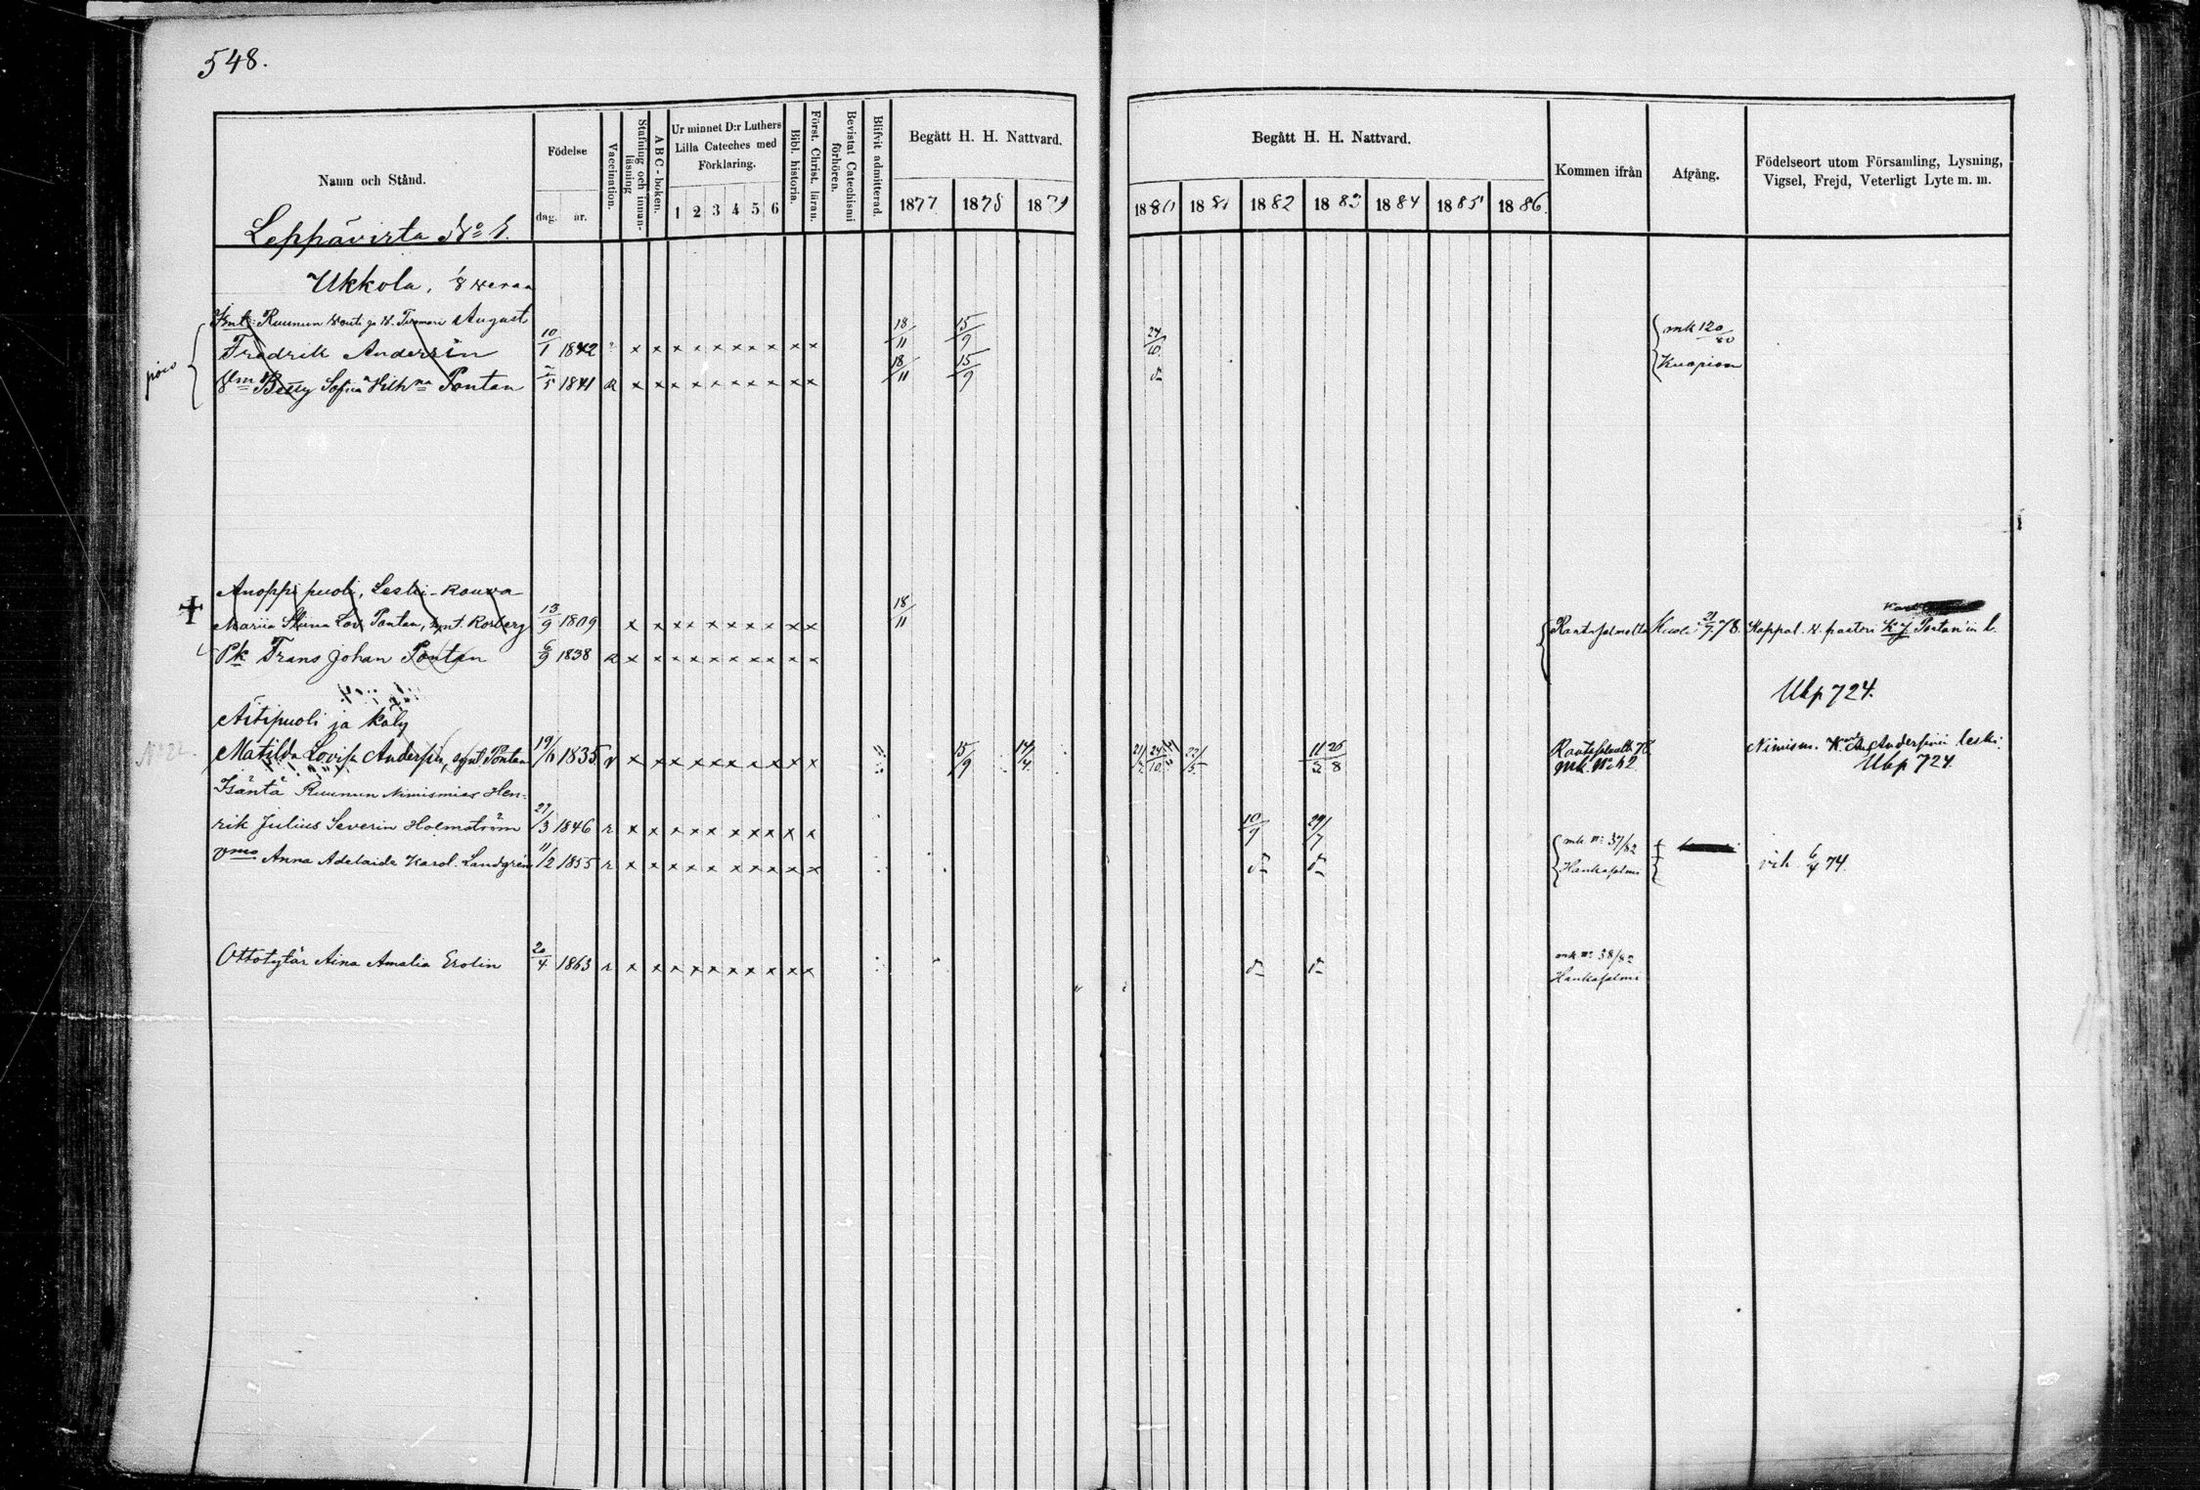 548.
Namn och Stånd.
Födelse
dag. år.
Vaccination.
Stafning och innan-läsning
A B C - boken.
Ur minnet D:r Luthers Lilla Cateches med Förklaring.
1 2 3 4 5 6
Bibl. historia.
Först. Christ. läran.
Bevistat Catechismi förhören.
Blifvit admitterad.
Begått H. H. Nattvard.
1877 1878 1879
Begått H. H. Nattvard.
1880 1881 1882 1883 1884 1885 1886
Kommen ifrån
Afgång.
Födelseort utom Församling, Lysning, Vigsel, Frejd, Veterligt Lyte m. m.
Leppävirta No
Ukkola, 1/8 veroa
Ruunun Vouti ja V. Tuomari August 18/11 15/9 24/10 mk 120/80
Fredrik Andersin 10/1 1842 x x x x x x x x x x Kuopioon
pois
Vm Betty Sofia Vilhna Pontan 2/5 1841 R x x x x x x x x x x 18/11 15/9
Anoppi puoli, Leski-Rouva
Mariia Stiina Lov. Pontan, synt. Rosberg 13/9 1809 x x x x x x x x x x 18/11 Rantasalmelta Kuoli 21/7 78. Kappal. v. pastori K. J. Pontan'in l.
Pk Frans Johan Pontan 6/9 1838 R x x x x x x x x x x
Ukp 724.
Äitipuoli ja käly
Matilda Lovisa Andersin, synt Pontan 19/6 1835 v x x x x x x x x x x 15/9 14/4 Rantasalmelta 78 Nimism. Andersinin leski
mk. No 42 Ukp 724
Isäntä Ruunun Nimismies Hen-
rik Julius Severin Holmström 27/3 1846 r x x x x x x x x x x 10/9 29/7 mk No 37/82
Vmo Anna Adelaide Karol. Landgrén 11/2 1855 r x x x x x x x x x x Hankasalmi vih. 6/4 74.
Ottotytär Aina Amalia Erolin 20/4 1863 r x x x x x x x x x x mk No 38/82
Hankasalmi